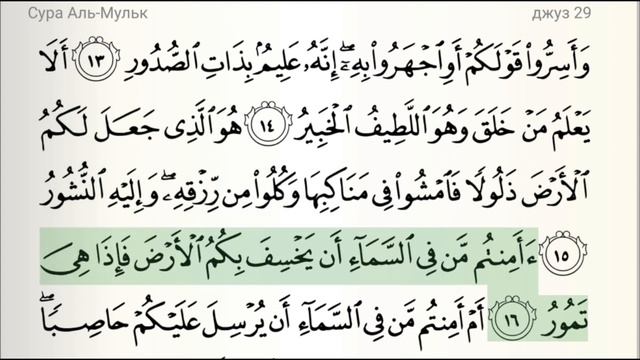 Сура Аль-Мульк джуз 29
وَأَسِرُّوا۟ قَوْلَكُمْ أَوِ ٱجْهَرُوا۟ بِهِۦٓ ۖ إِنَّهُۥ عَلِيمٌۢ بِذَاتِ ٱلصُّدُورِ ١٣ أَلَا
يَعْلَمُ مَنْ خَلَقَ وَهُوَ ٱللَّطِيفُ ٱلْخَبِيرُ ١٤ هُوَ ٱلَّذِى جَعَلَ لَكُمُ
ٱلْأَرْضَ ذَلُولًا فَٱمْشُوا۟ فِى مَنَاكِبِهَا وَكُلُوا۟ مِن رِّزْقِهِۦ ۖ وَإِلَيْهِ ٱلنُّشُورُ
١٥ ءَأَمِنتُم مَّن فِى ٱلسَّمَآءِ أَن يَخْسِفَ بِكُمُ ٱلْأَرْضَ فَإِذَا هِىَ
تَمُورُ ١٦ أَمْ أَمِنتُم مَّن فِى ٱلسَّمَآءِ أَن يُرْسِلَ عَلَيْكُمْ حَاصِبًا ۖ